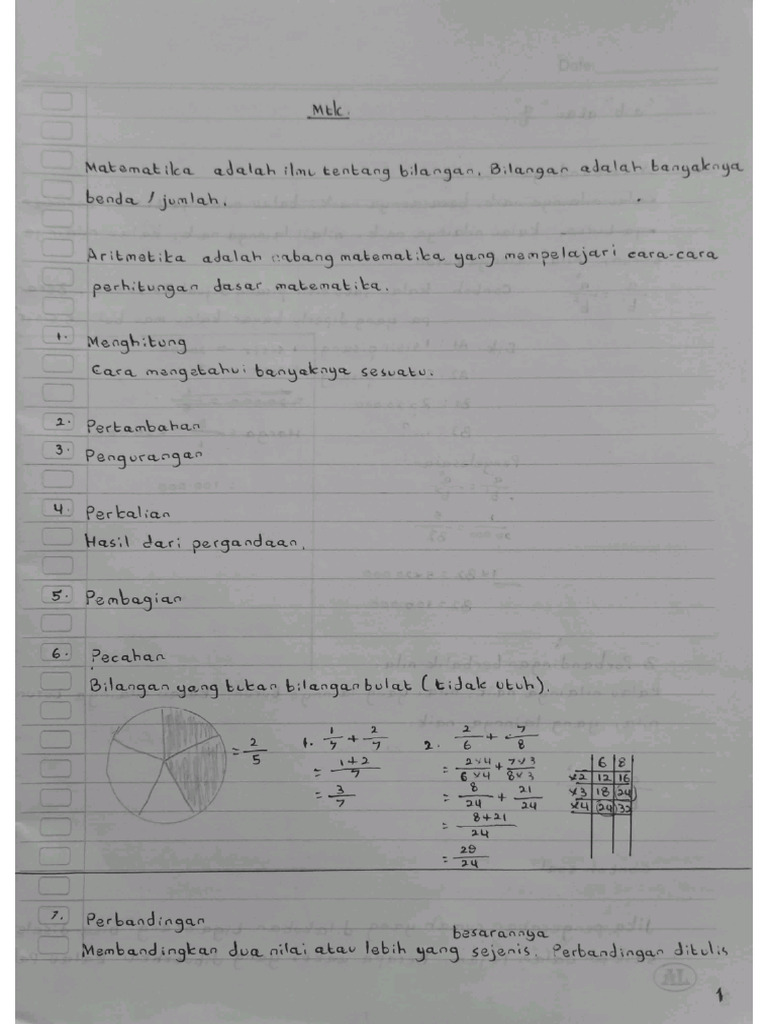 Date:
Mtk.
Matematika adalah ilmu tentang bilangan. Bilangan adalah banyaknya
benda / jumlah.
Aritmetika adalah cabang matematika yang mempelajari cara-cara
perhitungan dasar matematika.
1. Menghitung
Cara mengetahui banyaknya sesuatu.
2. Pertambahan
3. Pengurangan
4. Perkalian
Hasil dari pergandaan.
5. Pembagian
6. Pecahan
Bilangan yang bukan bilangan bulat (tidak utuh).
= 2/5
1. 1/7 + 2/7
= 1+2/7
= 3/7
2. 2/6 + 7/8
= 2×4/6×4 + 7×3/8×3
= 8/24 + 21/24
= 8+21/24
= 29/24
6 8
×2 12 16
×3 18 24
×4 24 32
7. Perbandingan
Membandingkan dua nilai atau lebih yang besarannya sejenis. Perbandingan ditulis
AL
1